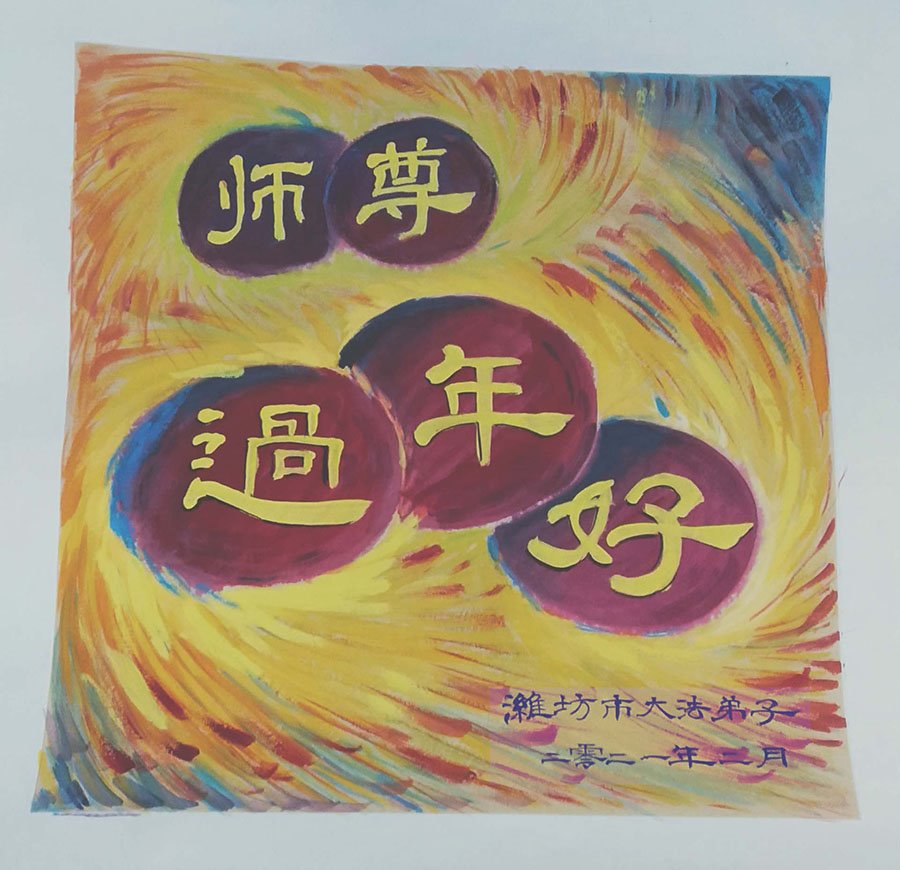 师尊
過年好
濰坊市大法弟子
二零二一年二月